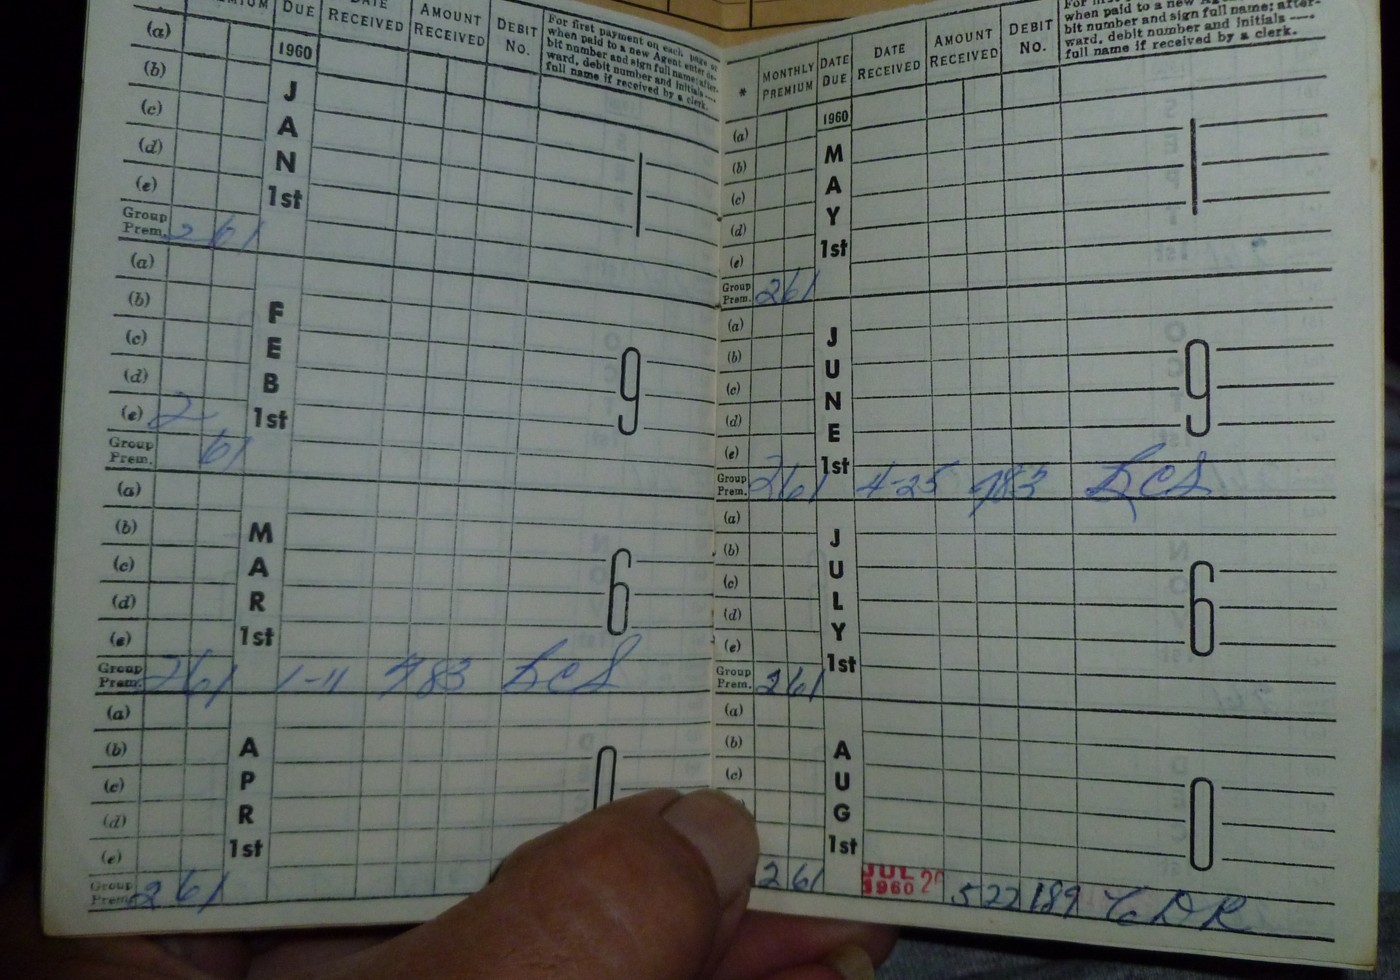 DUE
RECEIVED
AMOUNT
RECEIVED
DEBIT
No.
For first payment on each page or
when paid to a new Agent enter de-
bit number and sign full name; after-
ward, debit number and initials ----.
full name if received by a clerk.
(a)
1960
(b)
(c)
(d)
(e)
JAN
1st
1
Group
Prem.
261
(a)
(b)
(c)
(d)
(e)
FEB
1st
9
2
Group
Prem.
61
(a)
(b)
(c)
(d)
(e)
MAR
1st
6
Group
Prem.
261 1-11 783 LCS
(a)
(b)
(c)
(d)
(e)
APR
1st
0
Group
Prem.
261
*
MONTHLY
PREMIUM
DATE
DUE
DATE
RECEIVED
AMOUNT
RECEIVED
DEBIT
No.
when paid to a new
bit number and sign full name; after-
ward, debit number and initials ----.
full name if received by a clerk.
1960
(a)
(b)
(c)
(d)
(e)
MAY
1st
1
Group
Prem.
261
(a)
(b)
(c)
(d)
(e)
JUNE
1st
9
Group
Prem.
261 4-25 783 LCS
(a)
(b)
(c)
(d)
(e)
JULY
1st
6
Group
Prem.
261
(a)
(b)
(c)
AUG
1st
0
261 JUL 1960 522 189 CDR